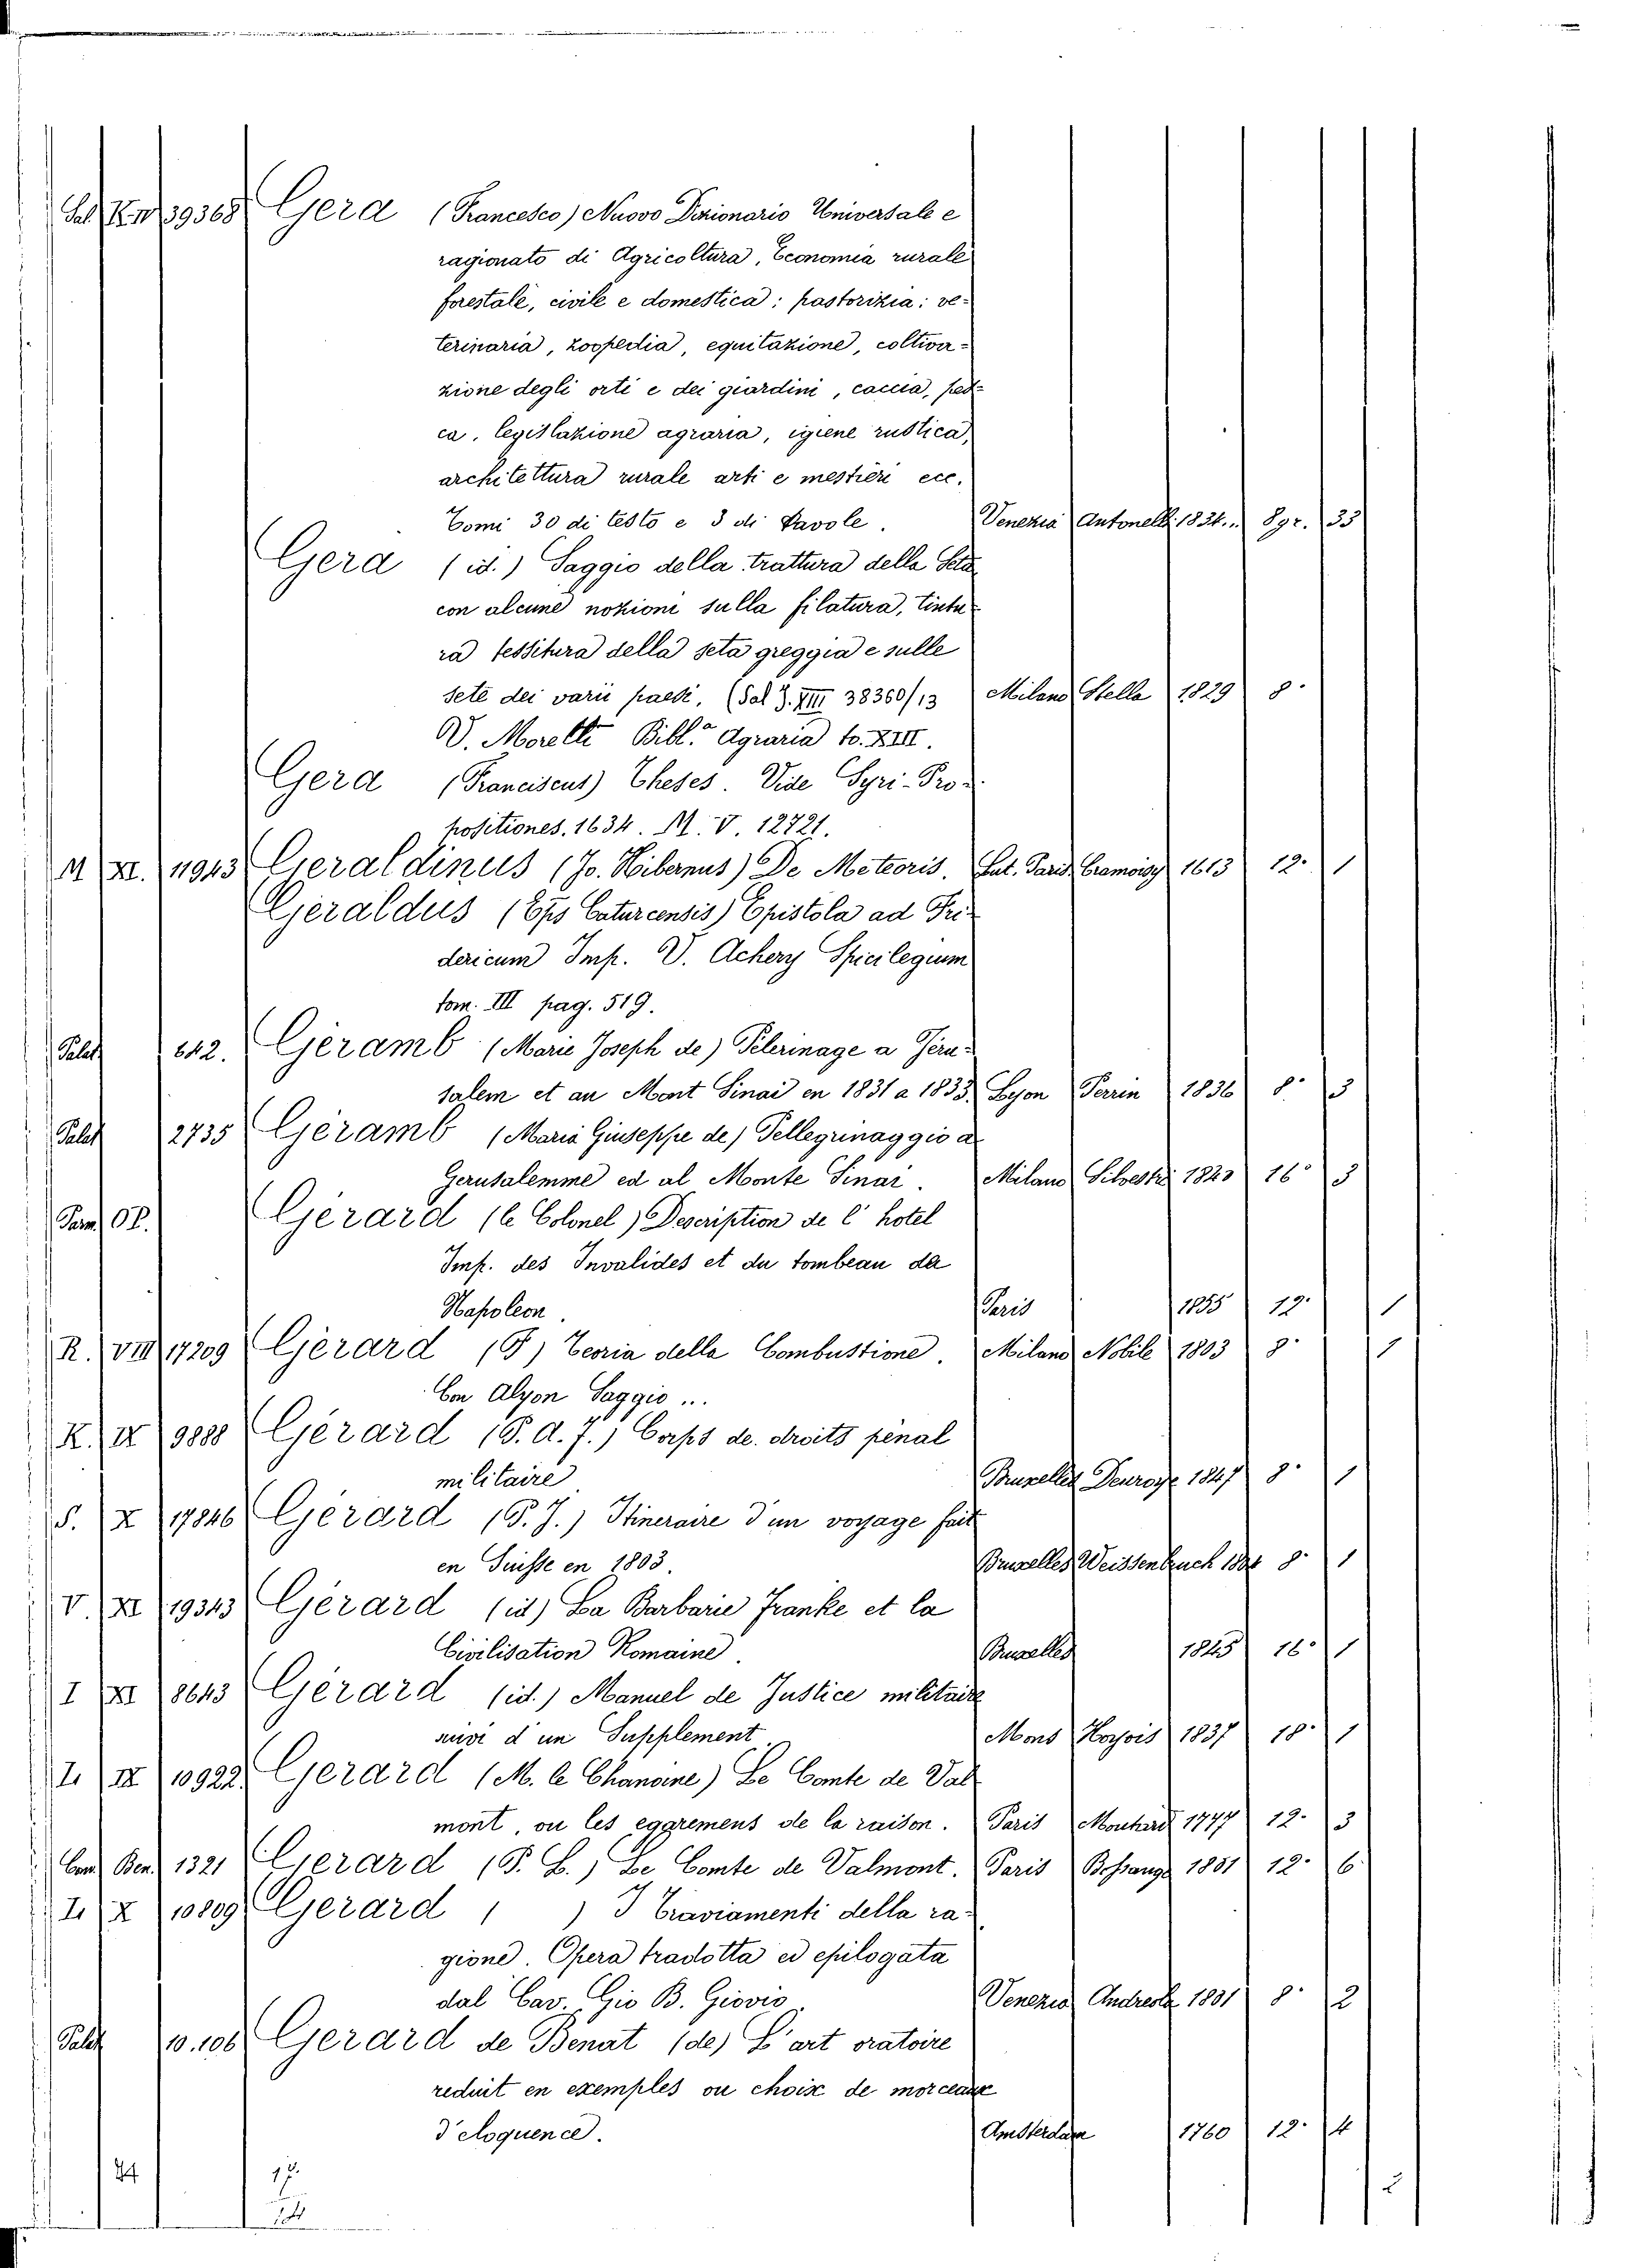 Sal. K. IV 39368 Gera (Francesco) Nuovo Dizionario Universale e
ragionato di Agricoltura, Economia rurale
forestale, civile e domestica; pastorizia; ve-
terinaria, zoopedia, equitazione, coltiva-
zione degli orti e dei giardini, caccia, pes-
ca, legislazione agraria, igiene rustica,
architettura rurale arti e mestieri ecc.
Tomi 30 di testo e 3 di Tavole. Venezia Antonelli 1834... 8 gr. 33
Gera (id.) Saggio della trattura della Seta
con alcune nozioni sulla filatura, tintu-
ra tessitura della seta greggia e sulle
sete dei varii paesi. (Sal J. XIII 38360/13 Milano Stella 1829 8°
V. Moretti Bibl.ª Agraria to. XIII.
Gera (Franciscus) Theses. Vide Syri-Pro-
positiones. 1634. M. V. 12721.
M XI. 11943 Geraldinus (Jo. Hibernus) De Meteoris. Lut. Paris. Cramoisy 1613 12° 1
Geraldus (Eps Caturcensis) Epistola ad Fri-
dericum Imp. V. Achery Spicilegium
tom. III pag. 519.
Palat 642. Géramb (Marie Joseph de) Pelerinage a Jéru-
salem et au Mont Sinai en 1831 a 1833. Lyon Perrin 1836 8° 3
Palat 2735 Géramb (Maria Giuseppe de) Pellegrinaggio a
Gerusalemme ed al Monte Sinai. Milano Silvestri 1840 16° 3
OP. Gérard (le Colonel) Description de l' hotel
Imp. des Invalides et du tombeau de
Napoleon. Paris 1855 12° 1
R. VIII 17209 Gérard (F) Teoria della Combustione. Milano Nobile 1803 8° 1
Con Alyon Saggio ...
K. IX 9888 Gérard (P. A. F.) Corps de droits penal
militaire Bruxelles Deuroye 1847 8° 1
S. X 17846 Gérard (P. J.) Itineraire d'un voyage fait
en Suisse en 1803. Bruxelles Weissenbruch 8° 1
V. XI 19343 Gérard (id) La Barbarie Franke et la
Civilisation Romaine. Bruxelles 1845 16° 1
I XI 8643 Gérard (id.) Manuel de Justice militaire
suivi d'un Supplement. Mons Hoyois 1837 18° 1
I. IX 10922. Gerard (M. le Chanoine) Le Comte de Val-
mont, ou les eggremens de la raison. Paris Moutard 1777 12° 3
Com Ben 1321 Gerard (P. L.) Le Comte de Valmont. Paris Bossange 1801 12° 6
I. X 10809 Gerard ( ) I Traviamenti della ra-
gione. Opera tradotta ed epilogata
dal Cav. Gio B. Giovio. Venezia Andreola 1801 8° 2
Palat 10.106 Gerard de Benat (de) L'art oratoire
reduit en exemples ou choix de morceaux
d'eloquence. Amsterdam 1760 12° 4
24 17. 2
24